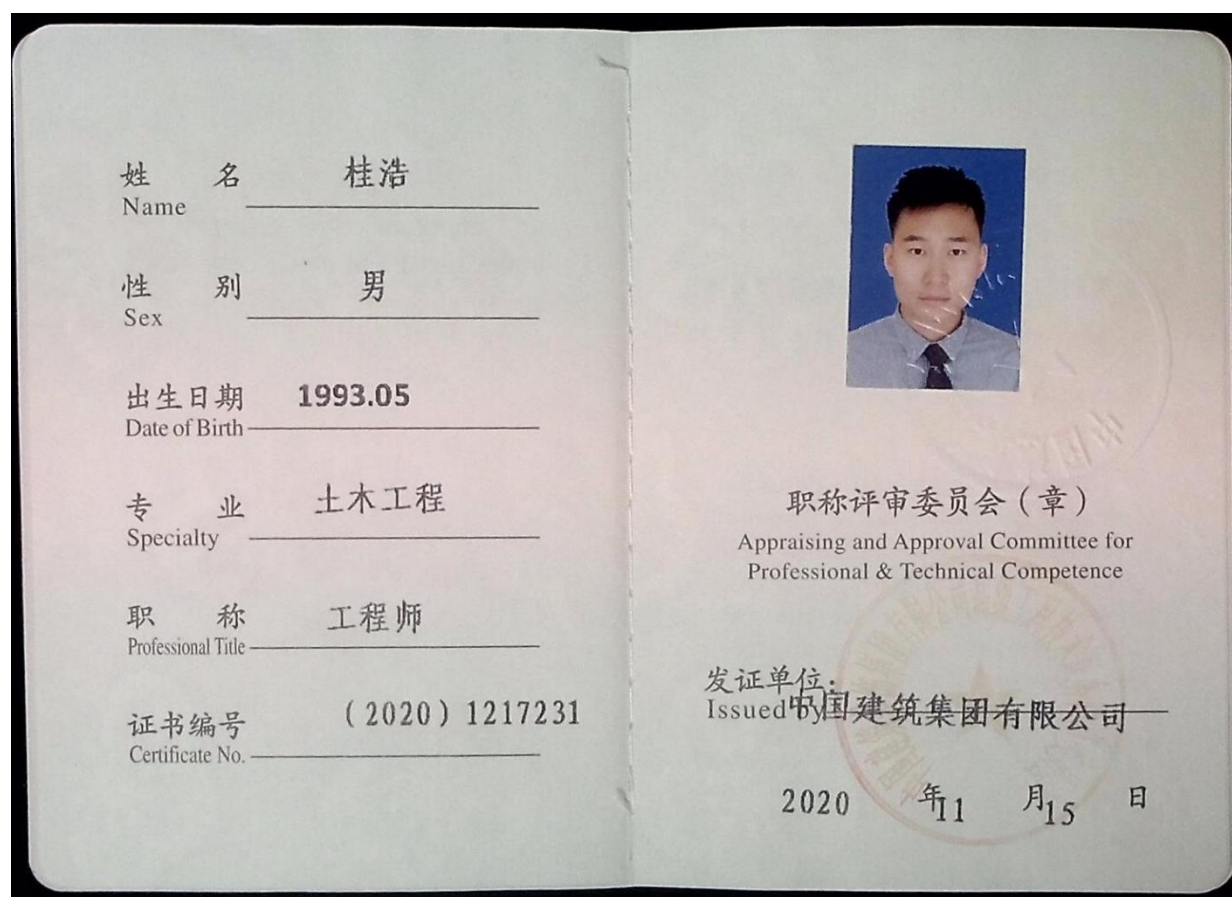 姓 名 桂浩
Name
性 别 男
Sex
出生日期 1993.05
Date of Birth
专 业 土木工程
Specialty
职 称 工程师
Professional Title
证书编号 (2020) 1217231
Certificate No.
职称评审委员会（章）
Appraising and Approval Committee for
Professional & Technical Competence
发证单位：
Issued by 中国建筑集团有限公司
2020 年 11 月 15 日